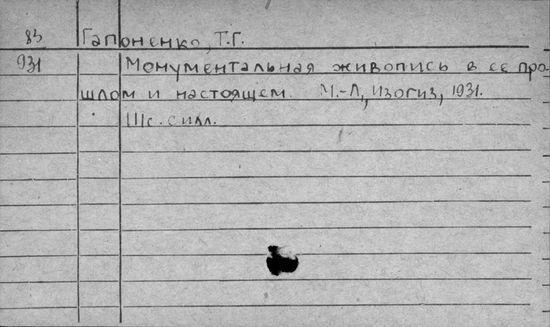 83 Гапоненко, Т.Г.
931 Монументальная живопись в ее про
шлом и настоящем. М.-Л., Изогиз, 1931.
с илл.